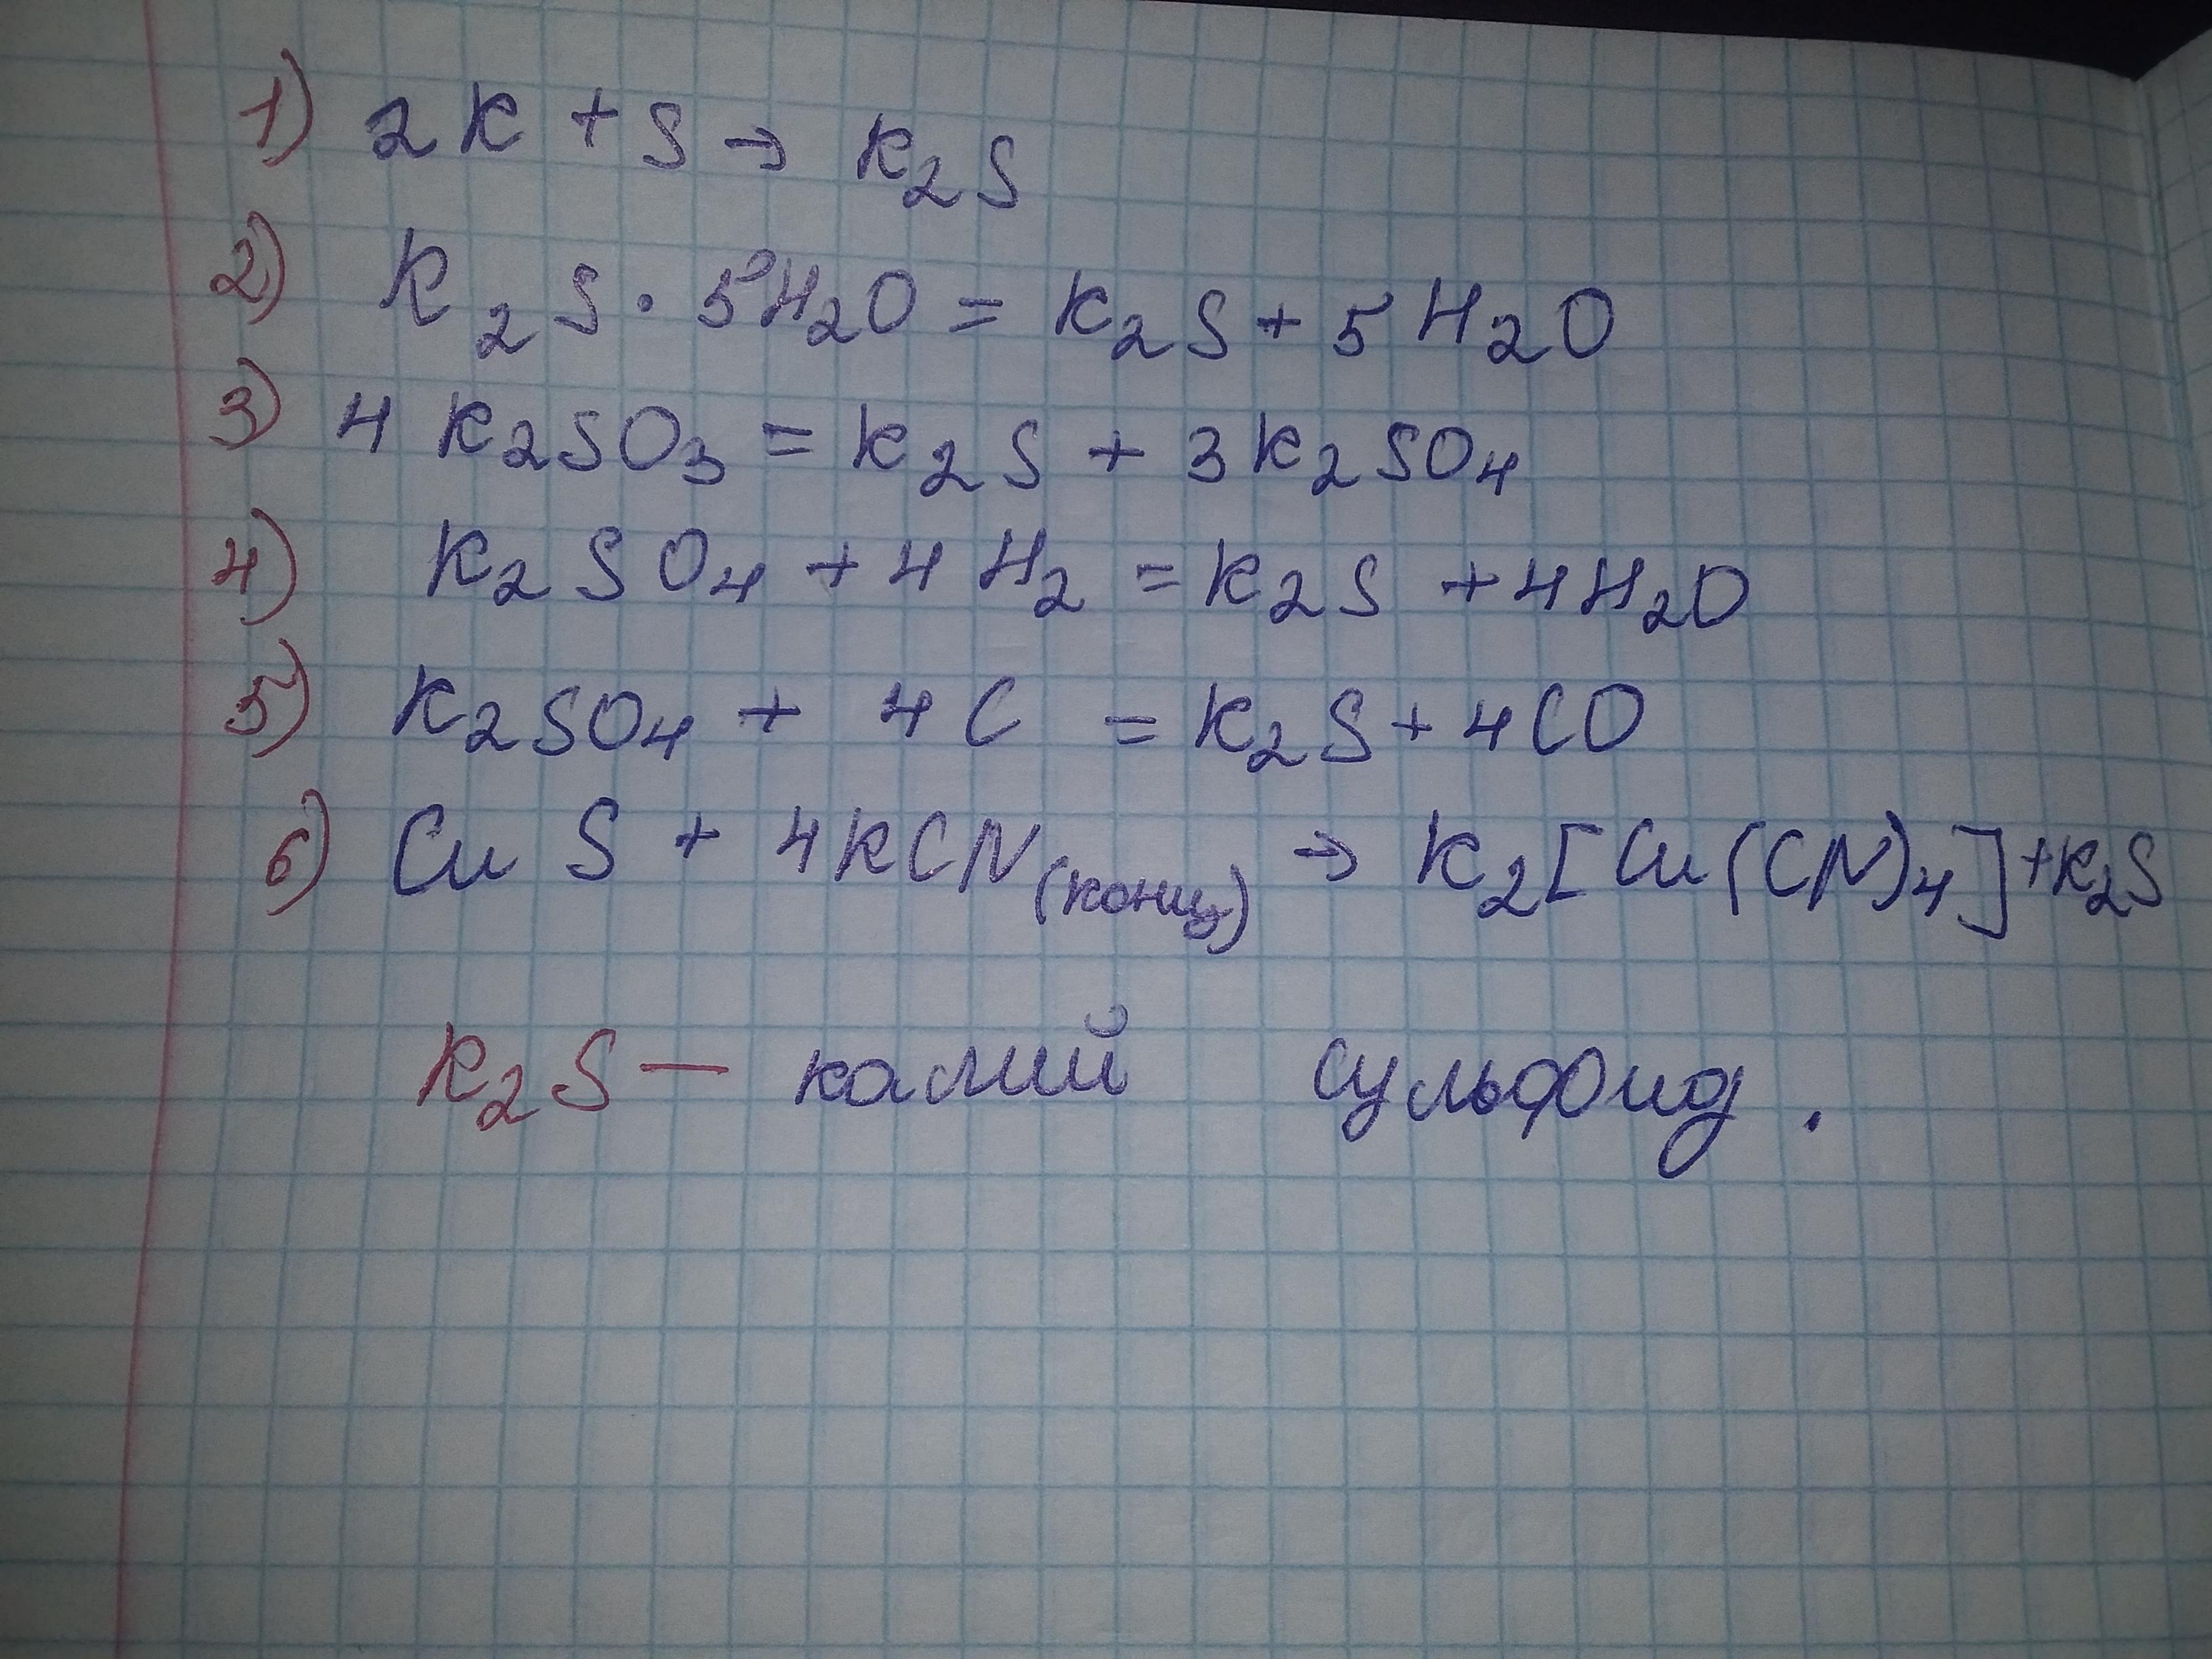 1) 2K + S → K₂S
2) K₂S · 5H₂O = K₂S + 5H₂O
3) 4K₂SO₃ = K₂S + 3K₂SO₄
4) K₂SO₄ + 4H₂ = K₂S + 4H₂O
5) K₂SO₄ + 4C = K₂S + 4CO
6) CuS + 4KCN(конц) → K₂[Cu(CN)₄] + K₂S
K₂S — калий сульфид.